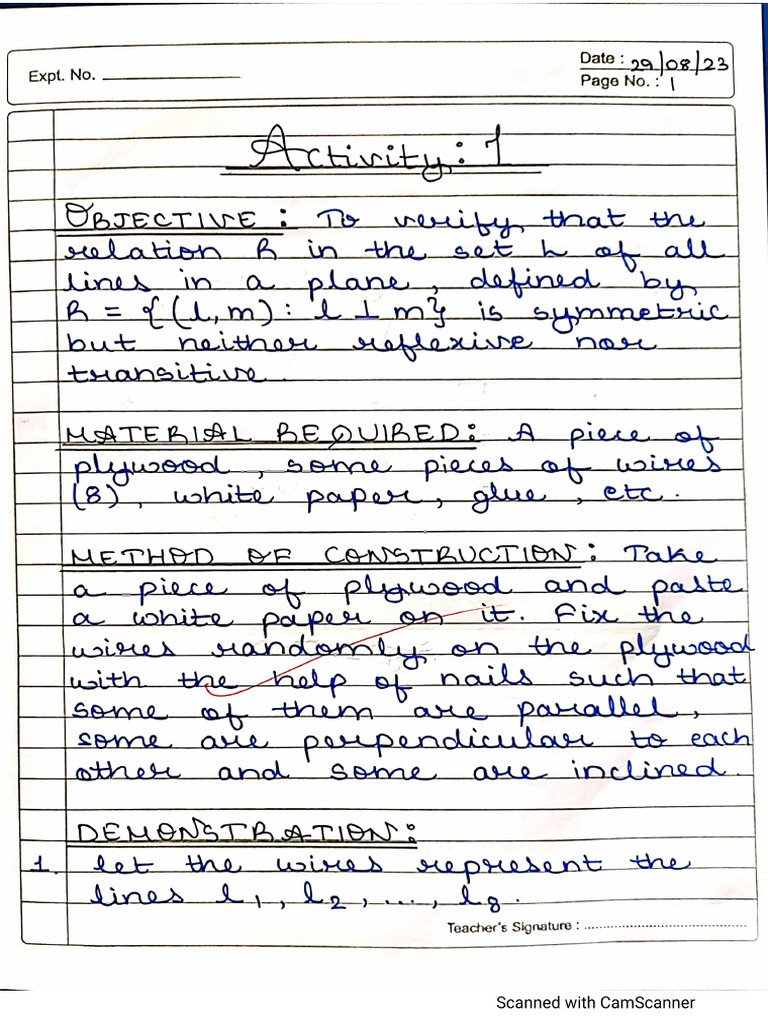 Expt. No.
Date : 29/08/23
Page No. : 1
Activity: 1
OBJECTIVE : To verify that the
relation R in the set L of all
lines in a plane, defined by
R = {(l, m) : l ⊥ m} is symmetric
but neither reflexive nor
transitive.
MATERIAL REQUIRED: A piece of
plywood, some pieces of wires
(8), white paper, glue, etc.
METHOD OF CONSTRUCTION: Take
a piece of plywood and paste
a white paper on it. Fix the
wires randomly on the plywood
with the help of nails such that
some of them are parallel,
some are perpendicular to each
other and some are inclined.
DEMONSTRATION:
1. let the wires represent the
lines l₁, l₂, ..., l₈.
Teacher's Signature :
Scanned with CamScanner